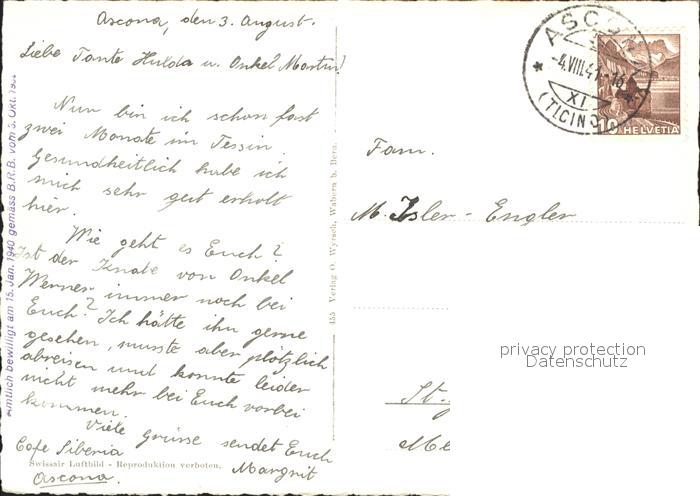 Ascona, den 3. August.
Liebe Tante Hulda u. Onkel Martin!
Nun bin ich schon fast
zwei Monate im Tessin.
Gesundheitlich habe ich
mich sehr gut erholt
hier.
Wie geht es Euch?
Ist der Knabe von Onkel
Werner immer noch bei
Euch? Ich hätte ihn gerne
gesehen, musste aber plötzlich
abreisen und konnte leider
nicht mehr bei Euch vorbei
kommen.
Viele Grüsse sendet Euch
Margrit
Cafe Siberia
Ascona.
Swissair Luftbild - Reproduktion verboten.
Amtlich bewilligt am 15. Jan. 1940 gemäss B.R.B. vom 3. Okt.
455 Verlag O. Wyrsch, Wabern b. Bern.
ASCONA
-4.VIII.41-16
XI
(TICINO)
10 HELVETIA
Fam.
M. Isler-Engler
privacy protection
Datenschutz
St.
Me